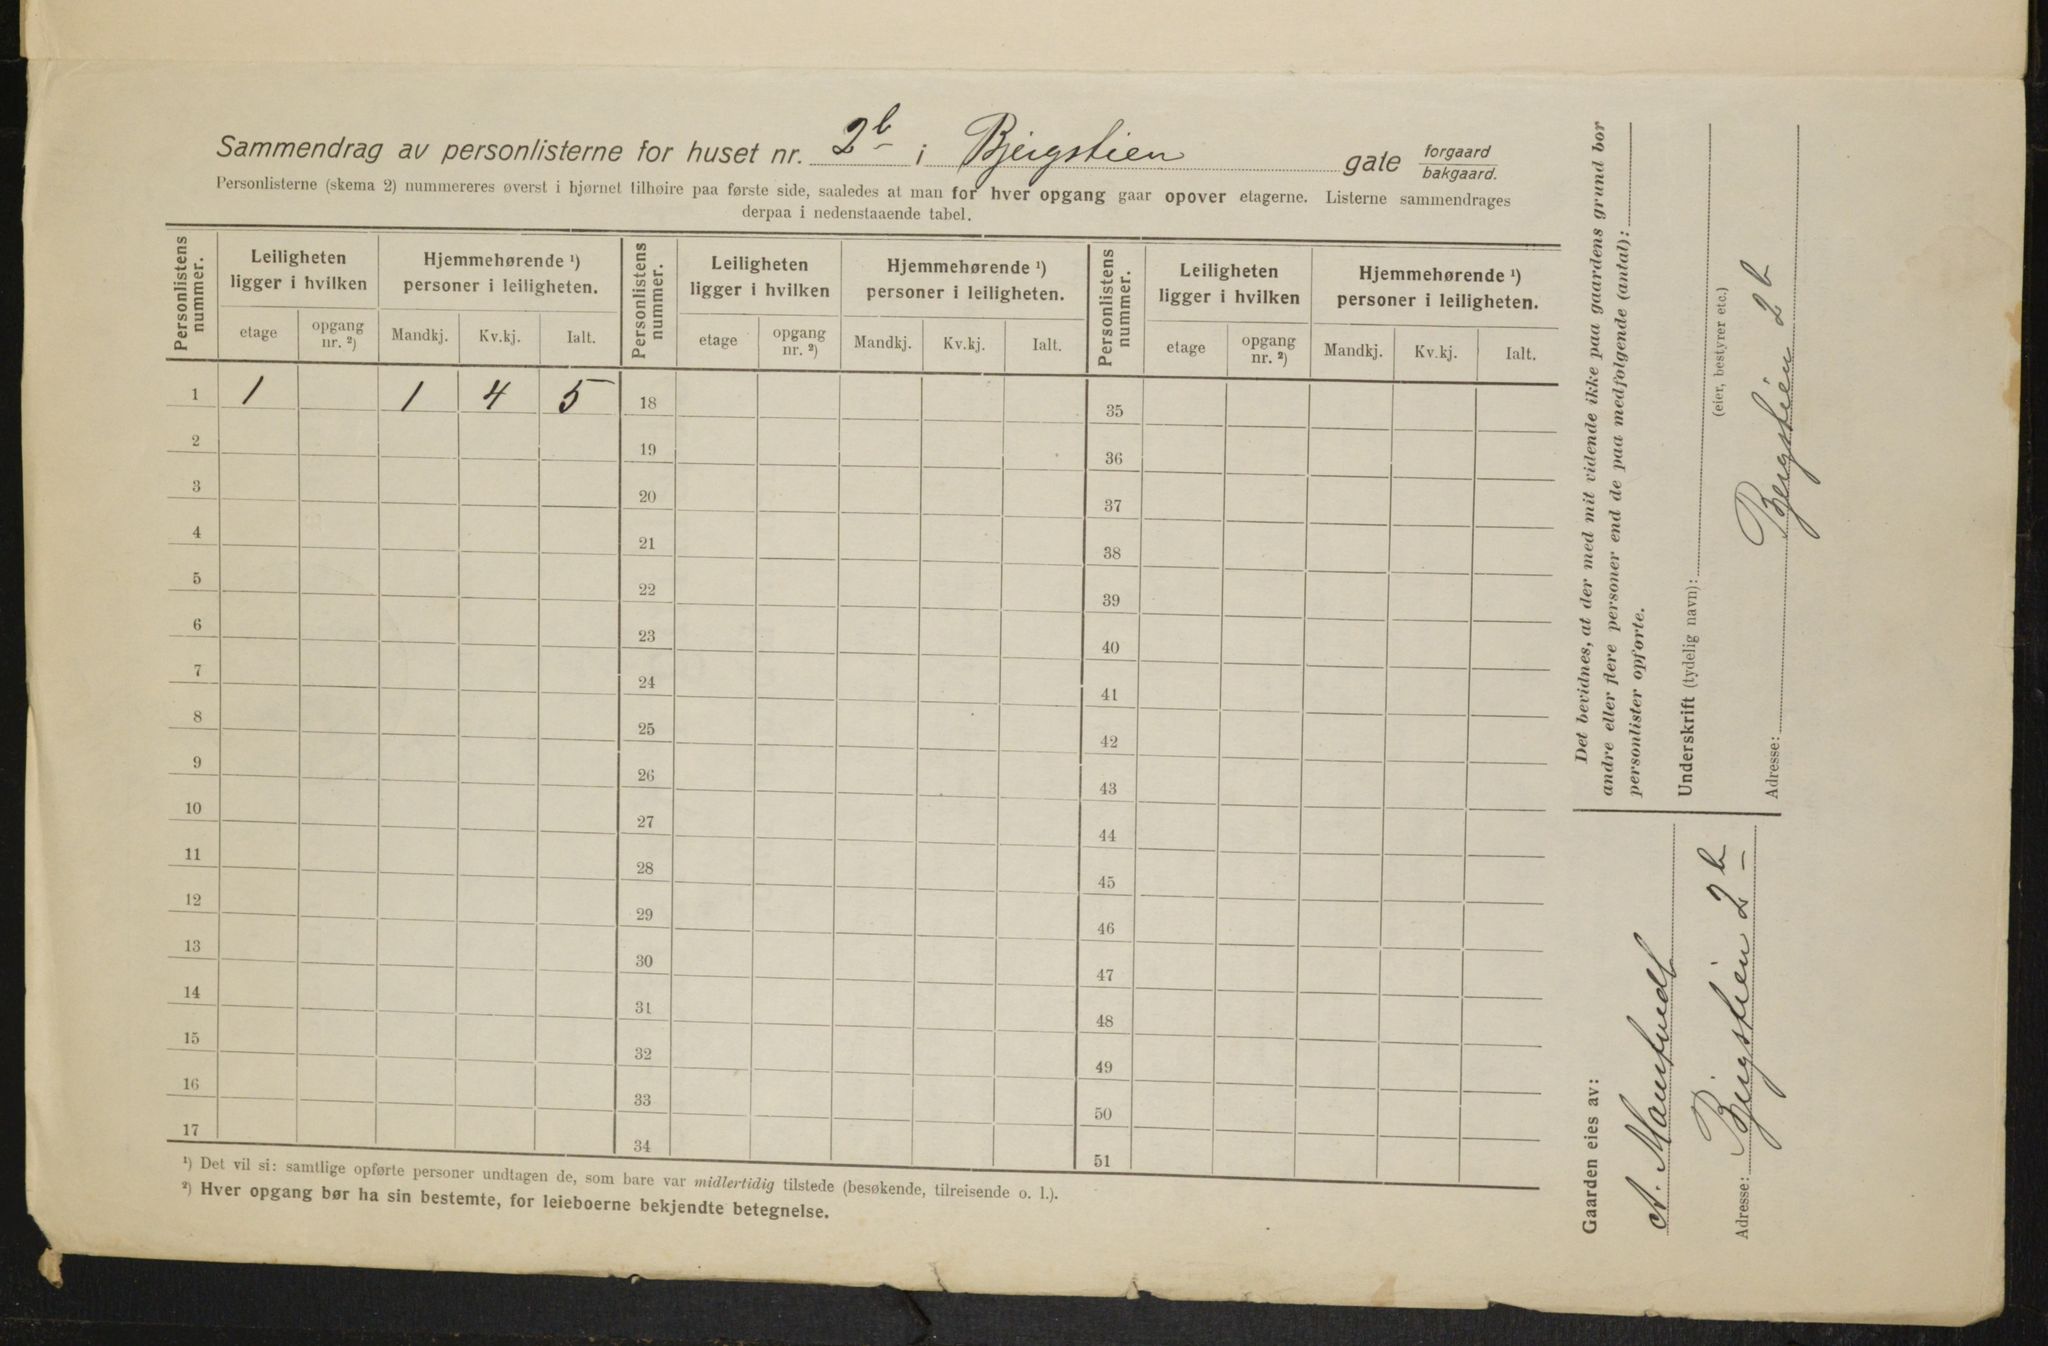 Sammendrag av personlisterne for huset nr. 2b i Bjergstien gate forgaard bakgaard.
Personlisterne (skema 2) nummereres øverst i bjørnet tilhøire paa første side, saaledes at man for hver opgang gaar opover etagerne. Listerne sammendrages
derpaa i nedenstaaende tabel.
Personlistens nummer. Leiligheten ligger i hvilken Hjemmehørende ¹) personer i leiligheten. Personlistens nummer. Leiligheten ligger i hvilken Hjemmehørende ¹) personer i leiligheten. Personlistens nummer. Leiligheten ligger i hvilken Hjemmehørende ¹) personer i leiligheten.
etage opgang nr. ²) Mandkj. Kv.kj. Ialt. etage opgang nr. ²) Mandkj. Kv.kj. Ialt. etage opgang nr. ²) Mandkj. Kv.kj. Ialt.
1 1 1 4 5 18 35
2 19 36
3 20 37
4 21 38
5 22 39
6 23 40
7 24 41
8 25 42
9 26 43
10 27 44
11 28 45
12 29 46
13 30 47
14 31 48
15 32 49
16 33 50
17 34 51
¹) Det vil si: samtlige opførte personer undtagen de, som bare var midlertidig tilstede (besøkende, tilreisende o. l.).
²) Hver opgang bør ha sin bestemte, for leieboerne bekjendte betegnelse.
Det bevidnes, at der med mit vidende ikke paa gaardens grund bor
andre eller flere personer end de paa medfølgende (antal):
personlister opførte.
Underskrift (tydelig navn):
(eier, bestyrer etc.)
Adresse: Bjergstien 2b
Gaarden eies av:
A.
Adresse: Bjergstien 2b